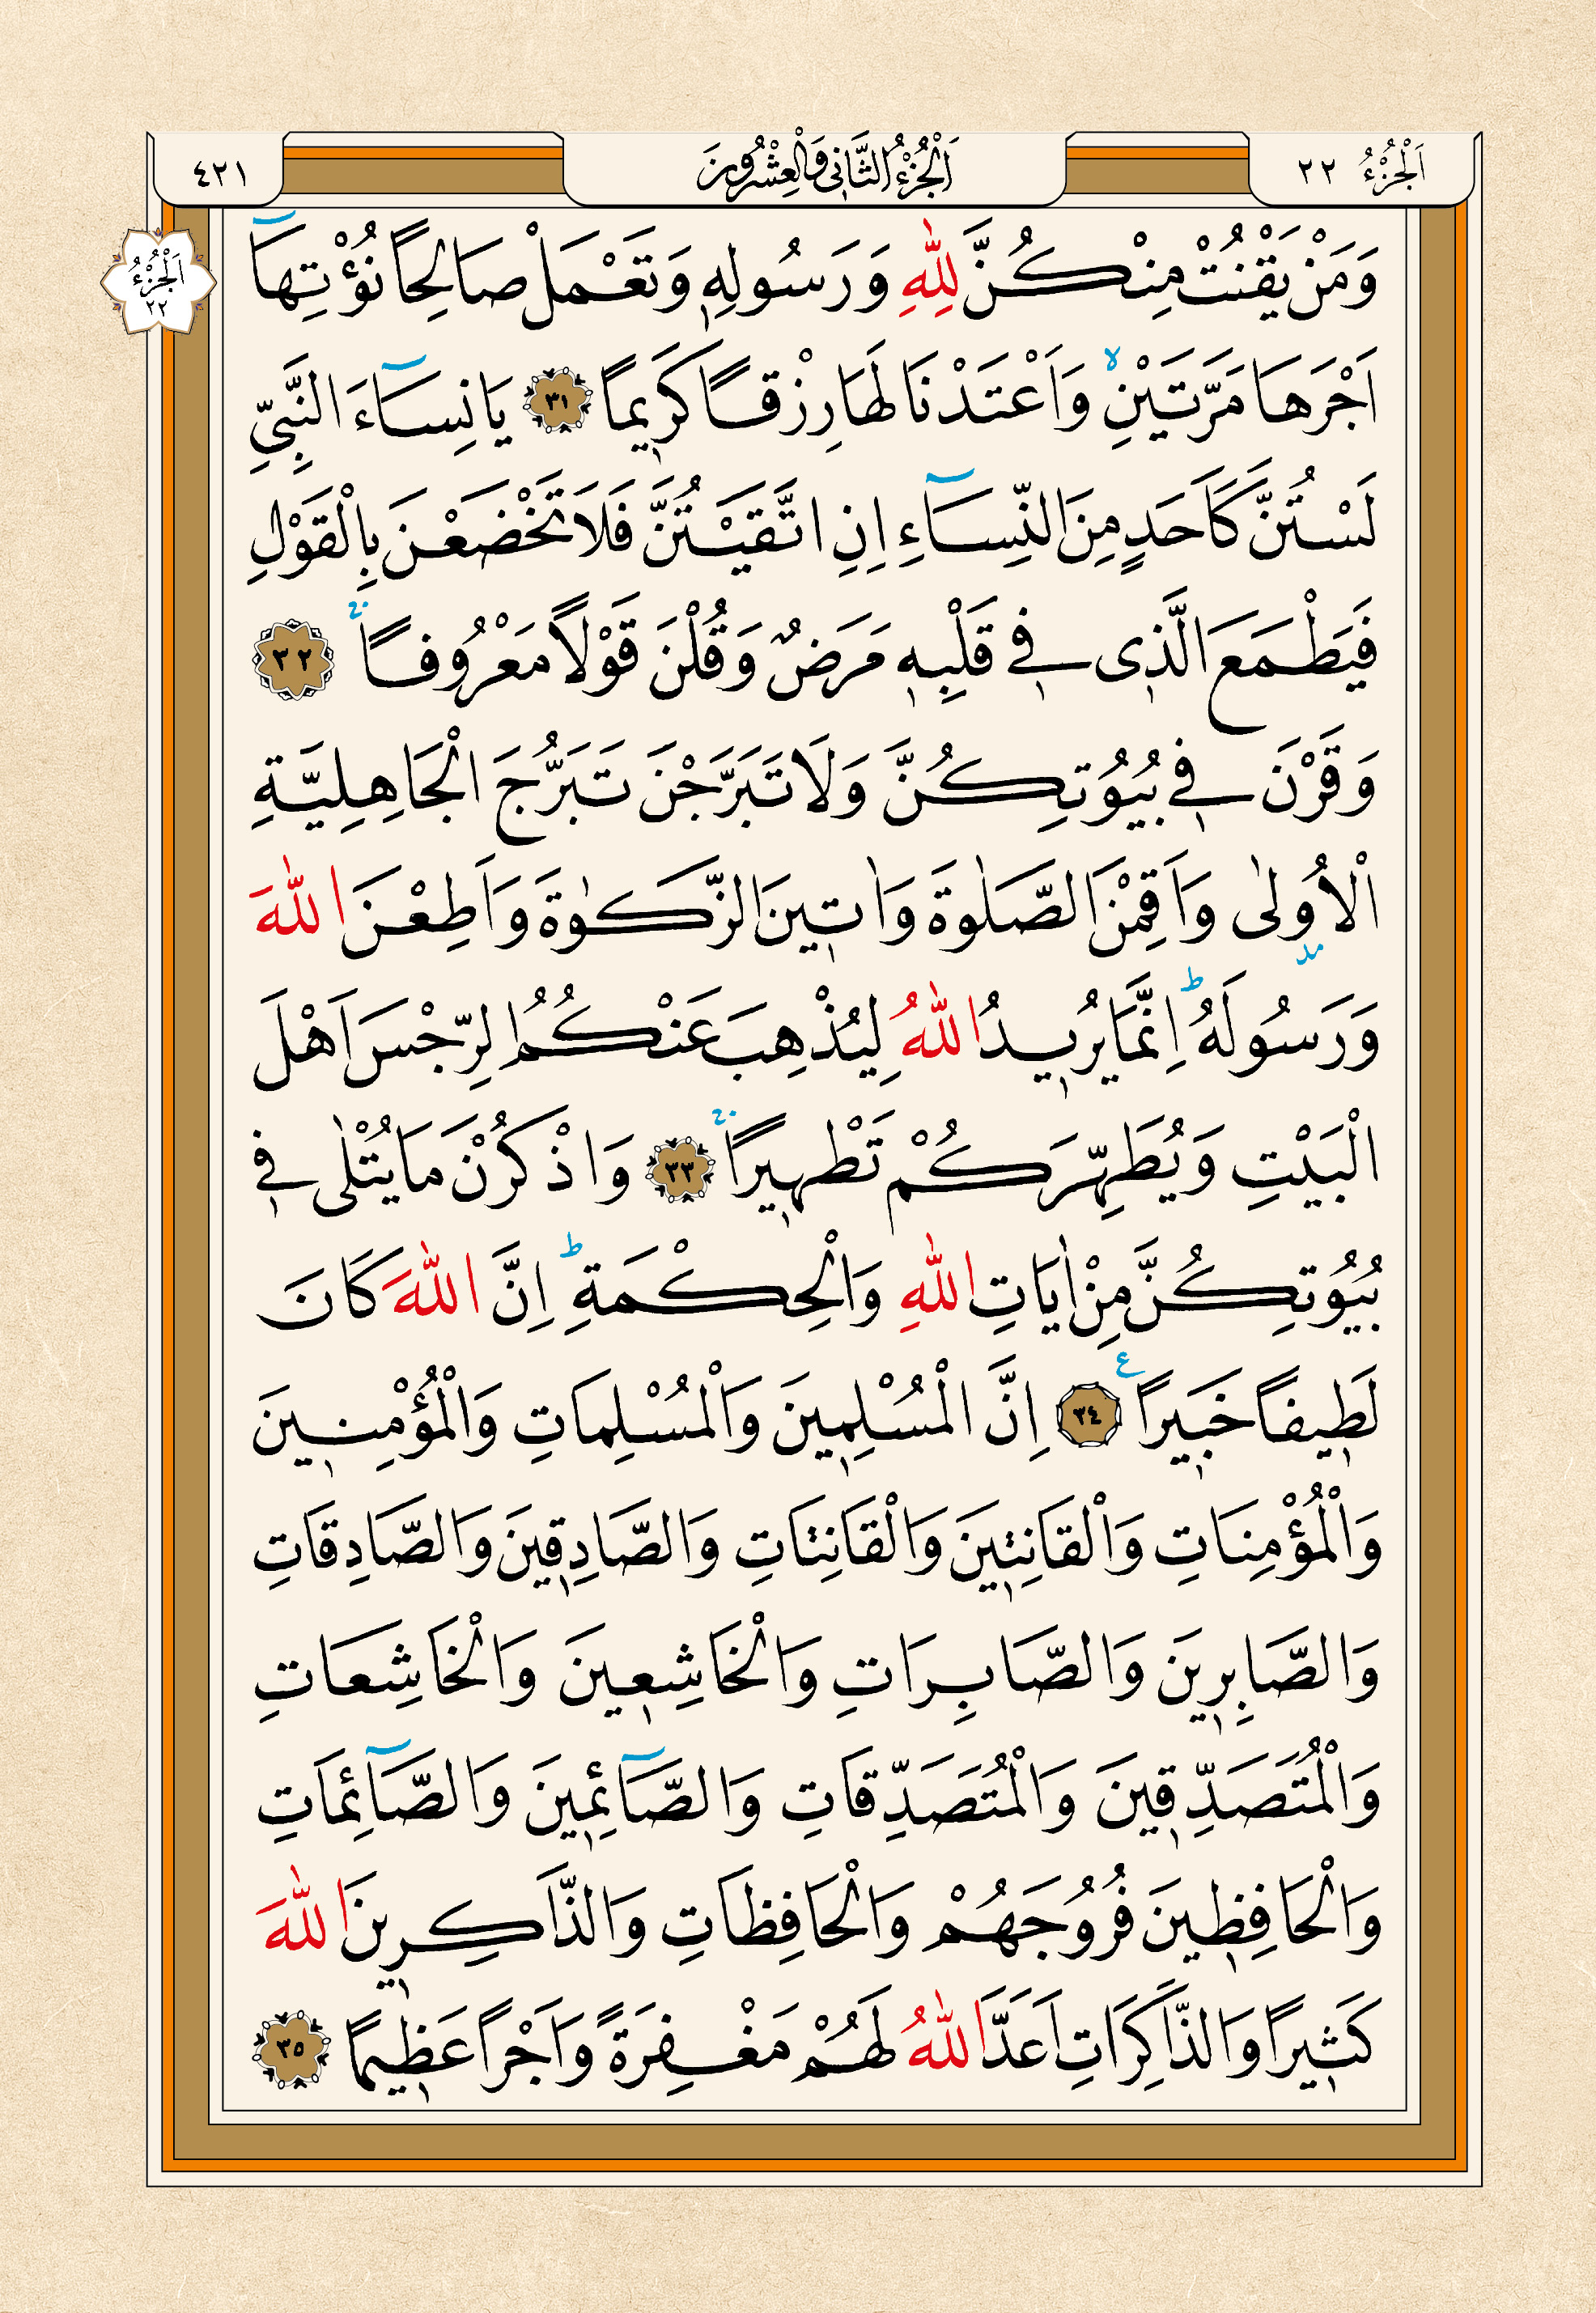 اَلْجُزْءُ ٢٢
اَلْجُزْءُ الثَّانِي وَالْعِشْرُونَ
٤٢١
اَلْجُزْءُ
٢٢
وَمَنْ يَقْنُتْ مِنْكُنَّ لِلّٰهِ وَرَسُولِه۪ وَتَعْمَلْ صَالِحًا نُؤْتِهَٓا
اَجْرَهَا مَرَّتَيْنِۙ وَاَعْتَدْنَا لَهَا رِزْقًا كَر۪يمًا ٣١ يَا نِسَٓاءَ النَّبِيِّ
لَسْتُنَّ كَاَحَدٍ مِنَ النِّسَٓاءِ اِنِ اتَّقَيْتُنَّ فَلَا تَخْضَعْنَ بِالْقَوْلِ
فَيَطْمَعَ الَّذ۪ي ف۪ي قَلْبِه۪ مَرَضٌ وَقُلْنَ قَوْلًا مَعْرُوفًاۚ ٣٢
وَقَرْنَ ف۪ي بُيُوتِكُنَّ وَلَا تَبَرَّجْنَ تَبَرُّجَ الْجَاهِلِيَّةِ
الْاُو۫لٰى وَاَقِمْنَ الصَّلٰوةَ وَاٰت۪ينَ الزَّكٰوةَ وَاَطِعْنَ اللّٰهَ
وَرَسُولَهُۜ اِنَّمَا يُر۪يدُ اللّٰهُ لِيُذْهِبَ عَنْكُمُ الرِّجْسَ اَهْلَ
الْبَيْتِ وَيُطَهِّرَكُمْ تَطْه۪يرًاۚ ٣٣ وَاذْكُرْنَ مَا يُتْلٰى ف۪ي
بُيُوتِكُنَّ مِنْ اٰيَاتِ اللّٰهِ وَالْحِكْمَةِۜ اِنَّ اللّٰهَ كَانَ
لَط۪يفًا خَب۪يرًا۟ ٣٤ اِنَّ الْمُسْلِم۪ينَ وَالْمُسْلِمَاتِ وَالْمُؤْمِن۪ينَ
وَالْمُؤْمِنَاتِ وَالْقَانِت۪ينَ وَالْقَانِتَاتِ وَالصَّادِق۪ينَ وَالصَّادِقَاتِ
وَالصَّابِر۪ينَ وَالصَّابِرَاتِ وَالْخَاشِع۪ينَ وَالْخَاشِعَاتِ
وَالْمُتَصَدِّق۪ينَ وَالْمُتَصَدِّقَاتِ وَالصَّٓائِم۪ينَ وَالصَّٓائِمَاتِ
وَالْحَافِظ۪ينَ فُرُوجَهُمْ وَالْحَافِظَاتِ وَالذَّاكِر۪ينَ اللّٰهَ
كَث۪يرًا وَالذَّاكِرَاتِ اَعَدَّ اللّٰهُ لَهُمْ مَغْفِرَةً وَاَجْرًا عَظ۪يمًا ٣٥